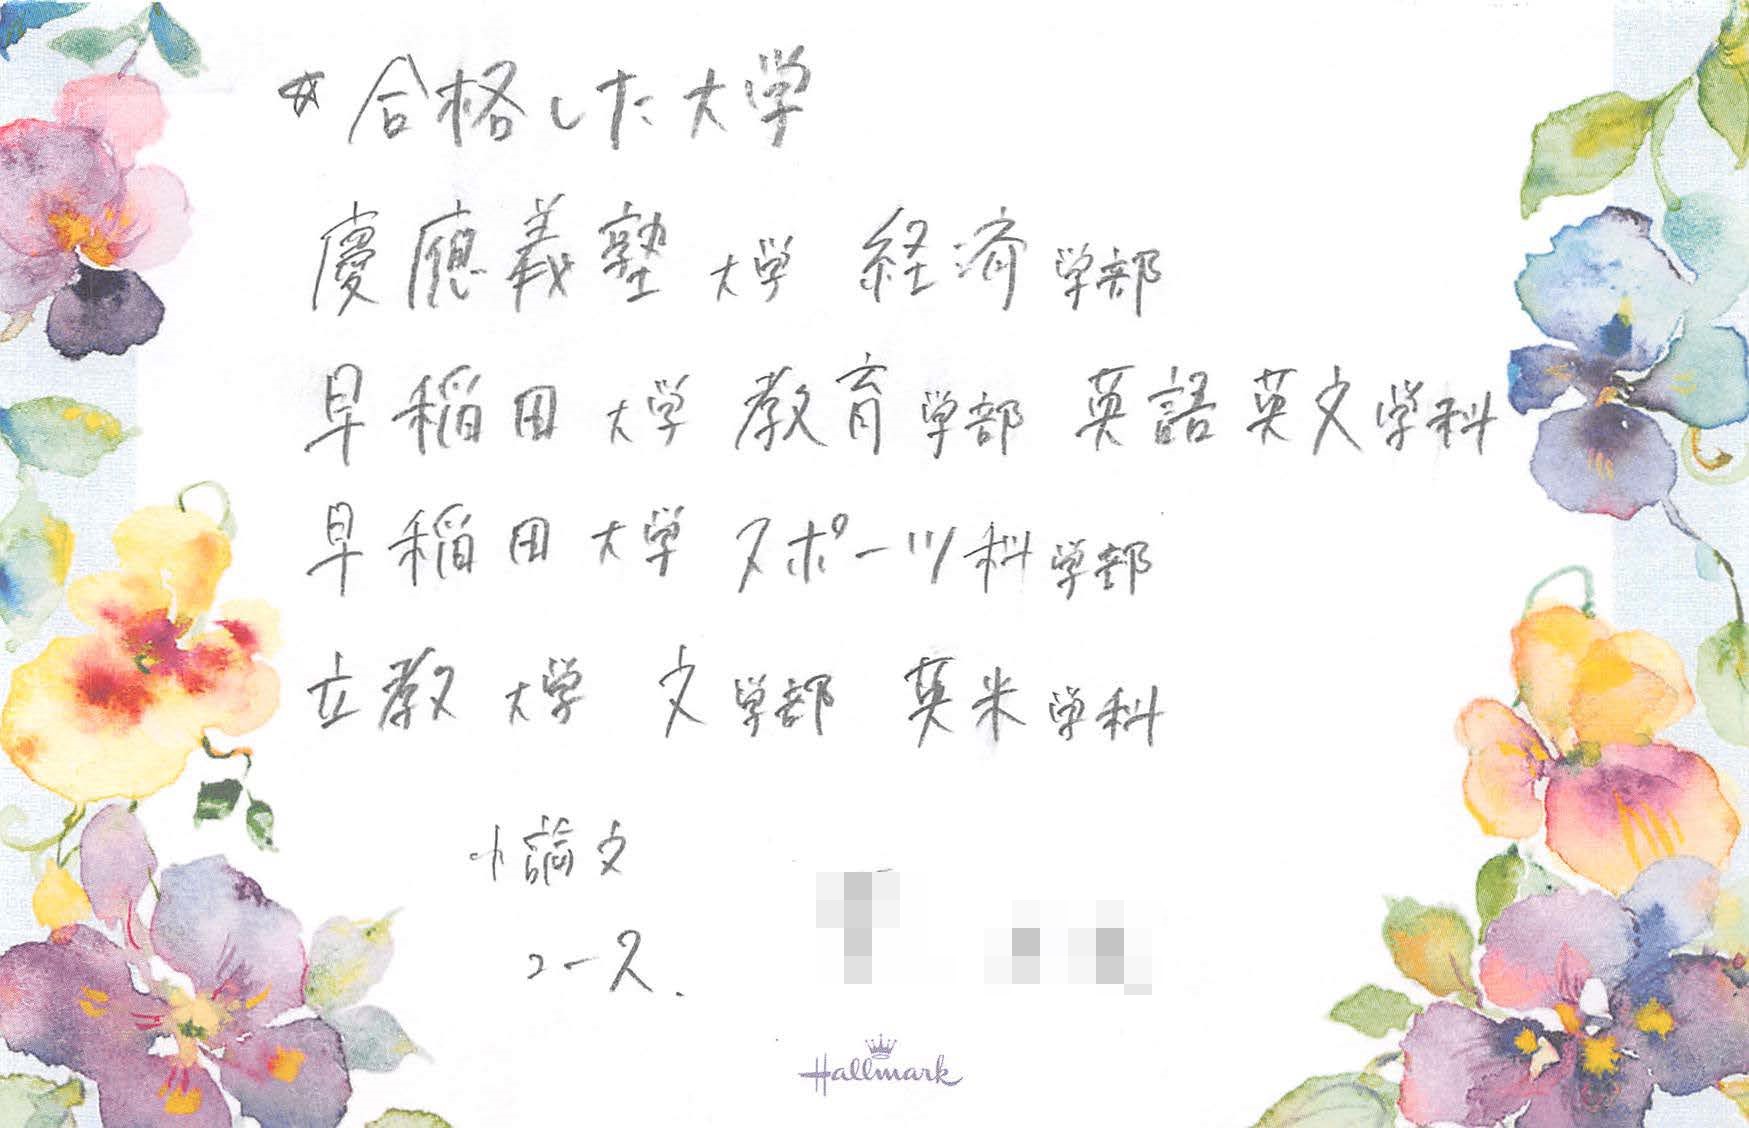 ☆合格した大学
慶應義塾大学 経済学部
早稲田大学 教育学部 英語英文学科
早稲田大学 スポーツ科学部
立教大学 文学部 英米学科
小論文
コース.
Hallmark